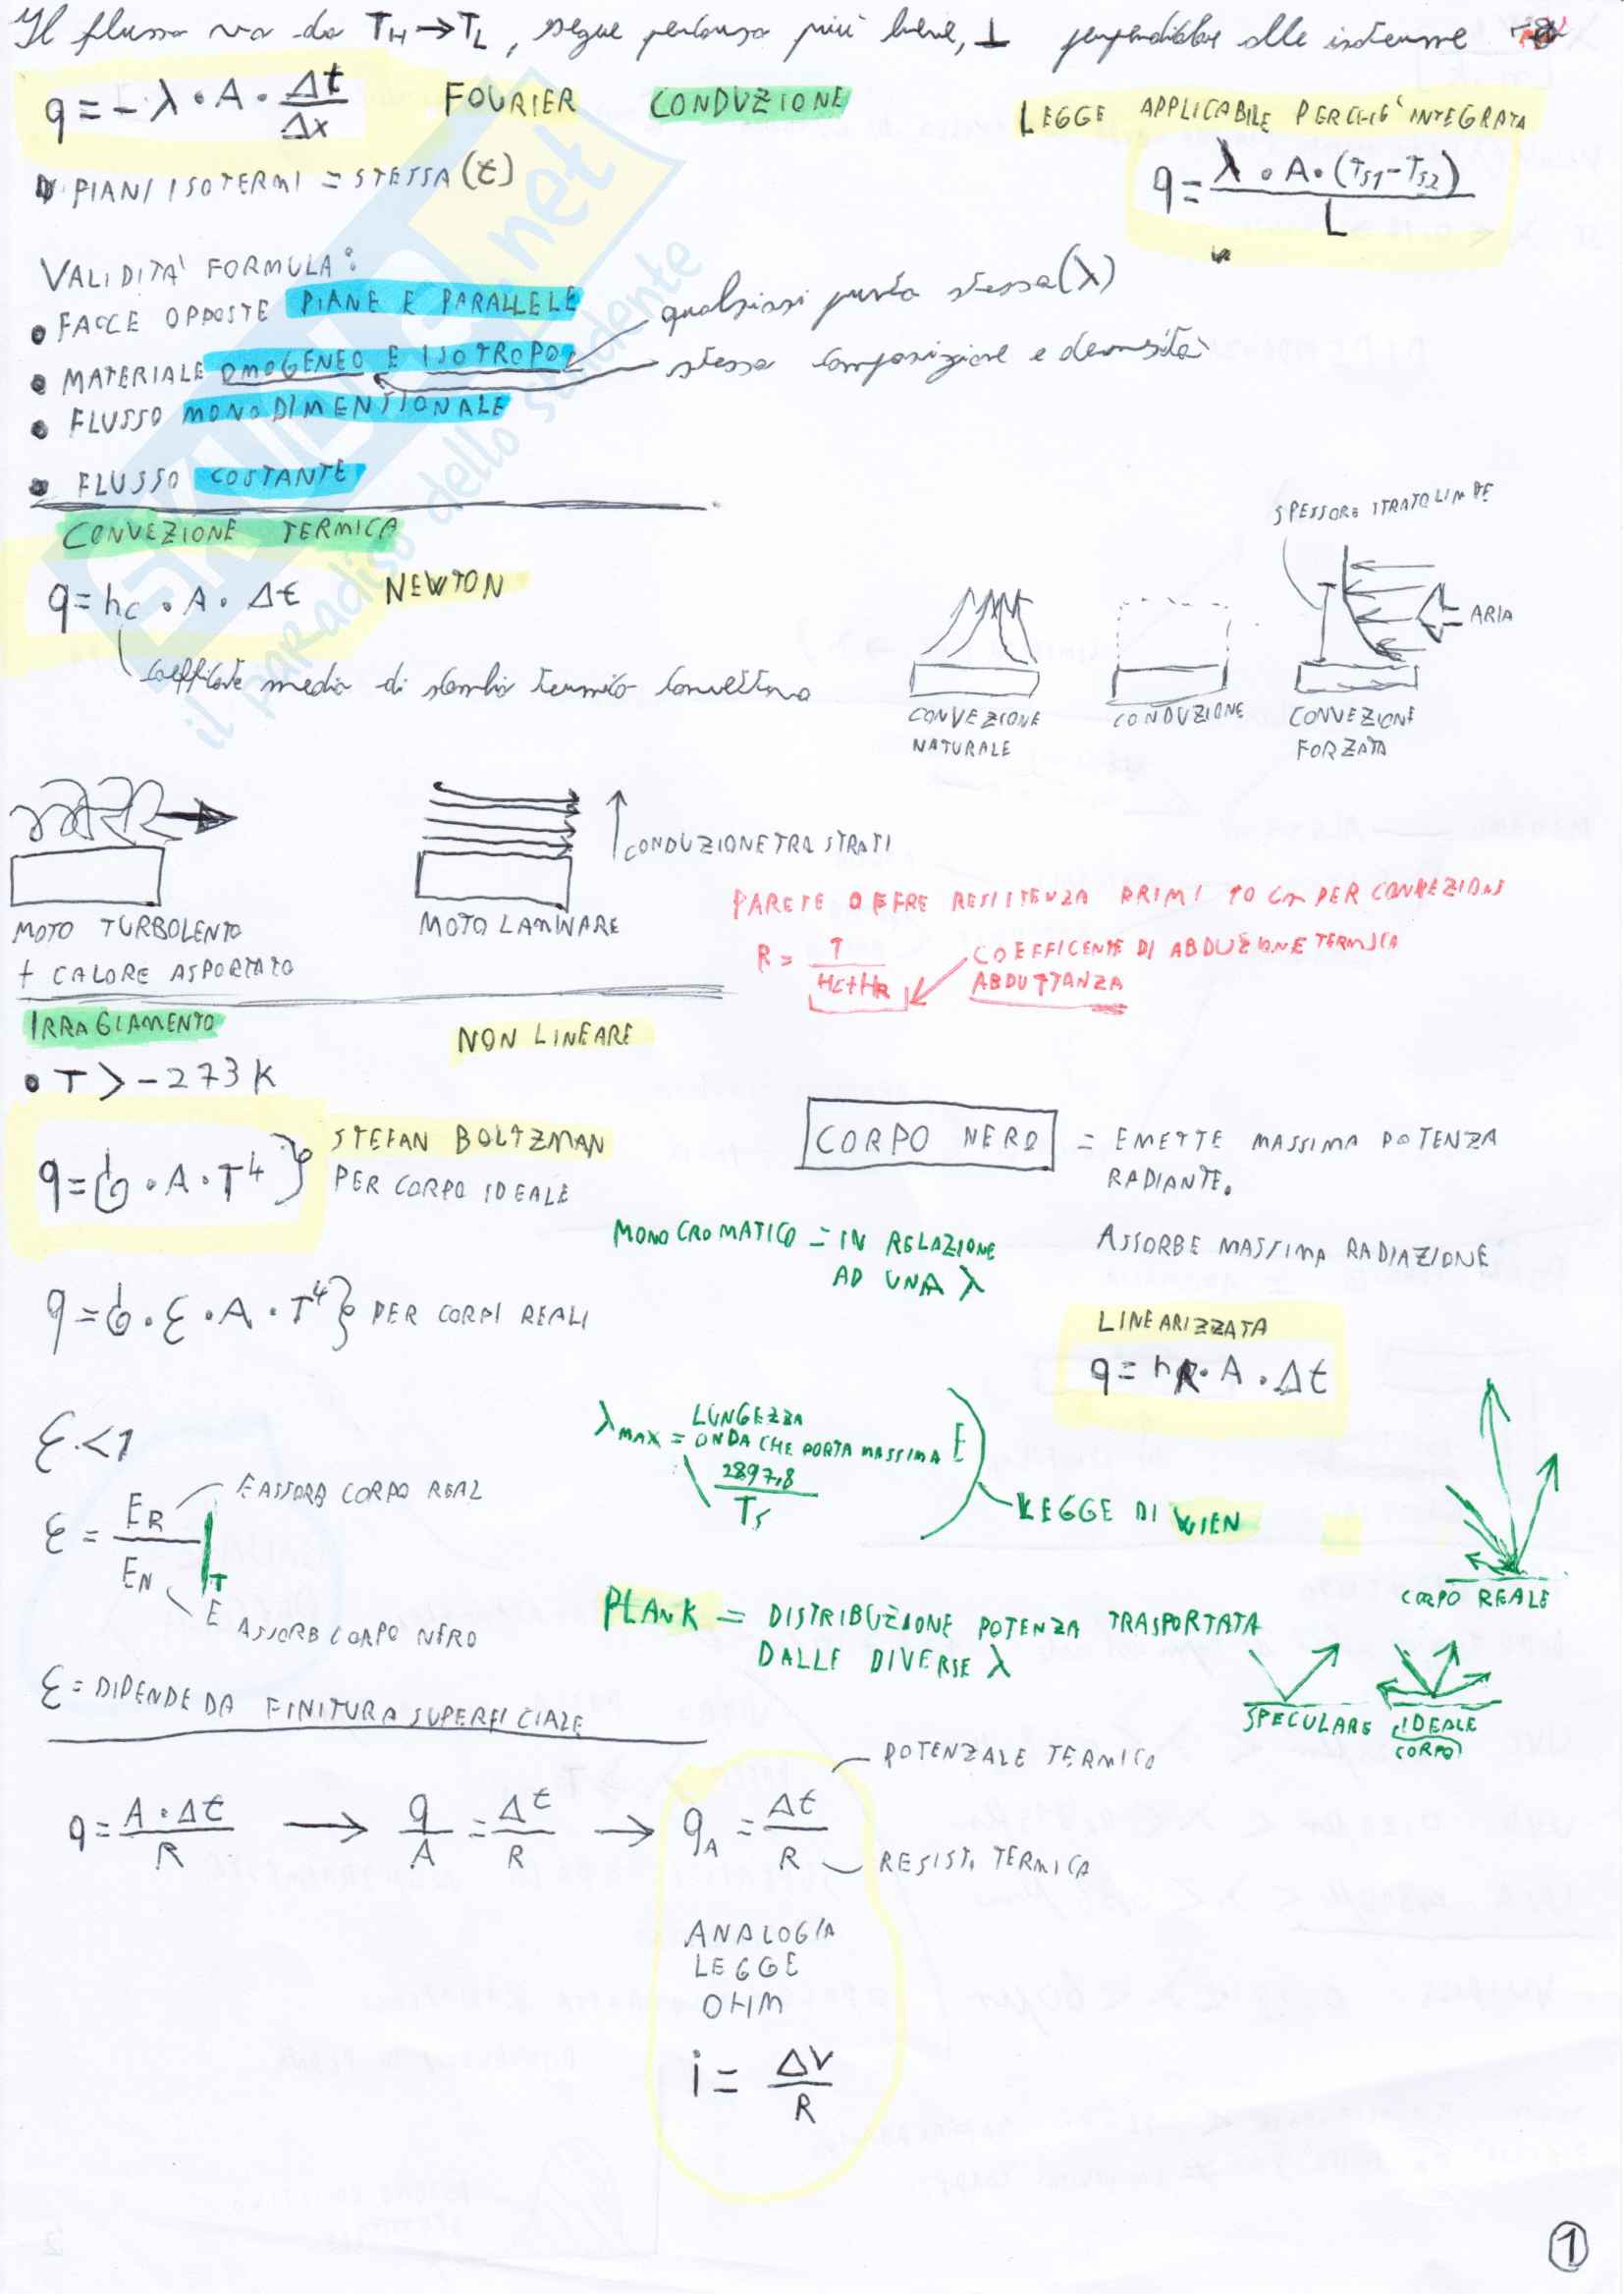 Il flusso va da TH→TL, segue percorso più breve, ⊥ perpendicolare alle isoterme
q = - λ · A · Δt/Δx FOURIER CONDUZIONE
LEGGE APPLICABILE PERCHÈ INTEGRATA
q = λ · A · (TS1-TS2)/L
PIANI ISOTERMI = STESSA (t)
VALIDITA' FORMULA:
• FACCE OPPOSTE PIANE E PARALLELE
qualsiasi punto stessa (λ)
• MATERIALE OMOGENEO E ISOTROPO
stessa composizione e densità
• FLUSSO MONODIMENSIONALE
• FLUSSO COSTANTE
CONVEZIONE TERMICA
q = hc · A · Δt NEWTON
coefficiente medio di scambio termico convettivo
SPESSORE STRATO LIMITE
ARIA
CONVEZIONE NATURALE
CONDUZIONE
CONVEZIONE FORZATA
CONDUZIONE TRA STRATI
MOTO TURBOLENTO
+ CALORE ASPORTATO
MOTO LAMINARE
PARETE OFFRE RESISTENZA PRIMI 10 cm PER CONVEZIONE
R = 1/HC+HR
COEFFICENTE DI ABDUZIONE TERMICA
ABDUTTANZA
IRRAGIAMENTO
NON LINEARE
• T > -273 K
q = σ · A · T⁴ } STEFAN BOLTZMAN
PER CORPO IDEALE
CORPO NERO = EMETTE MASSIMA POTENZA
RADIANTE.
ASSORBE MASSIMA RADIAZIONE
MONOCROMATICO = IN RELAZIONE
AD UNA λ
q = σ · ε · A · T⁴ } PER CORPI REALI
LINEARIZZATA
q = hR · A · Δt
ε < 1
λMAX = LUNGEZZA ONDA CHE PORTA MASSIMA E
2897,8/Ts
LEGGE DI WIEN
ε = ER/EN |T
E ASSORB CORPO REAL
E ASSORB CORPO NERO
CORPO REALE
PLANK = DISTRIBUZIONE POTENZA TRASPORTATA
DALLE DIVERSE λ
SPECULARE
IDEALE
(CORPO)
ε = DIPENDE DA FINITURA SUPERFICIALE
POTENZALE TERMICO
q = A · Δt/R → q/A = Δt/R → qA = Δt/R
RESIST. TERMICA
ANALOGIA
LEGGE
OHM
i = ΔV/R
1
SKUOLA.net
il paradiso dello studente